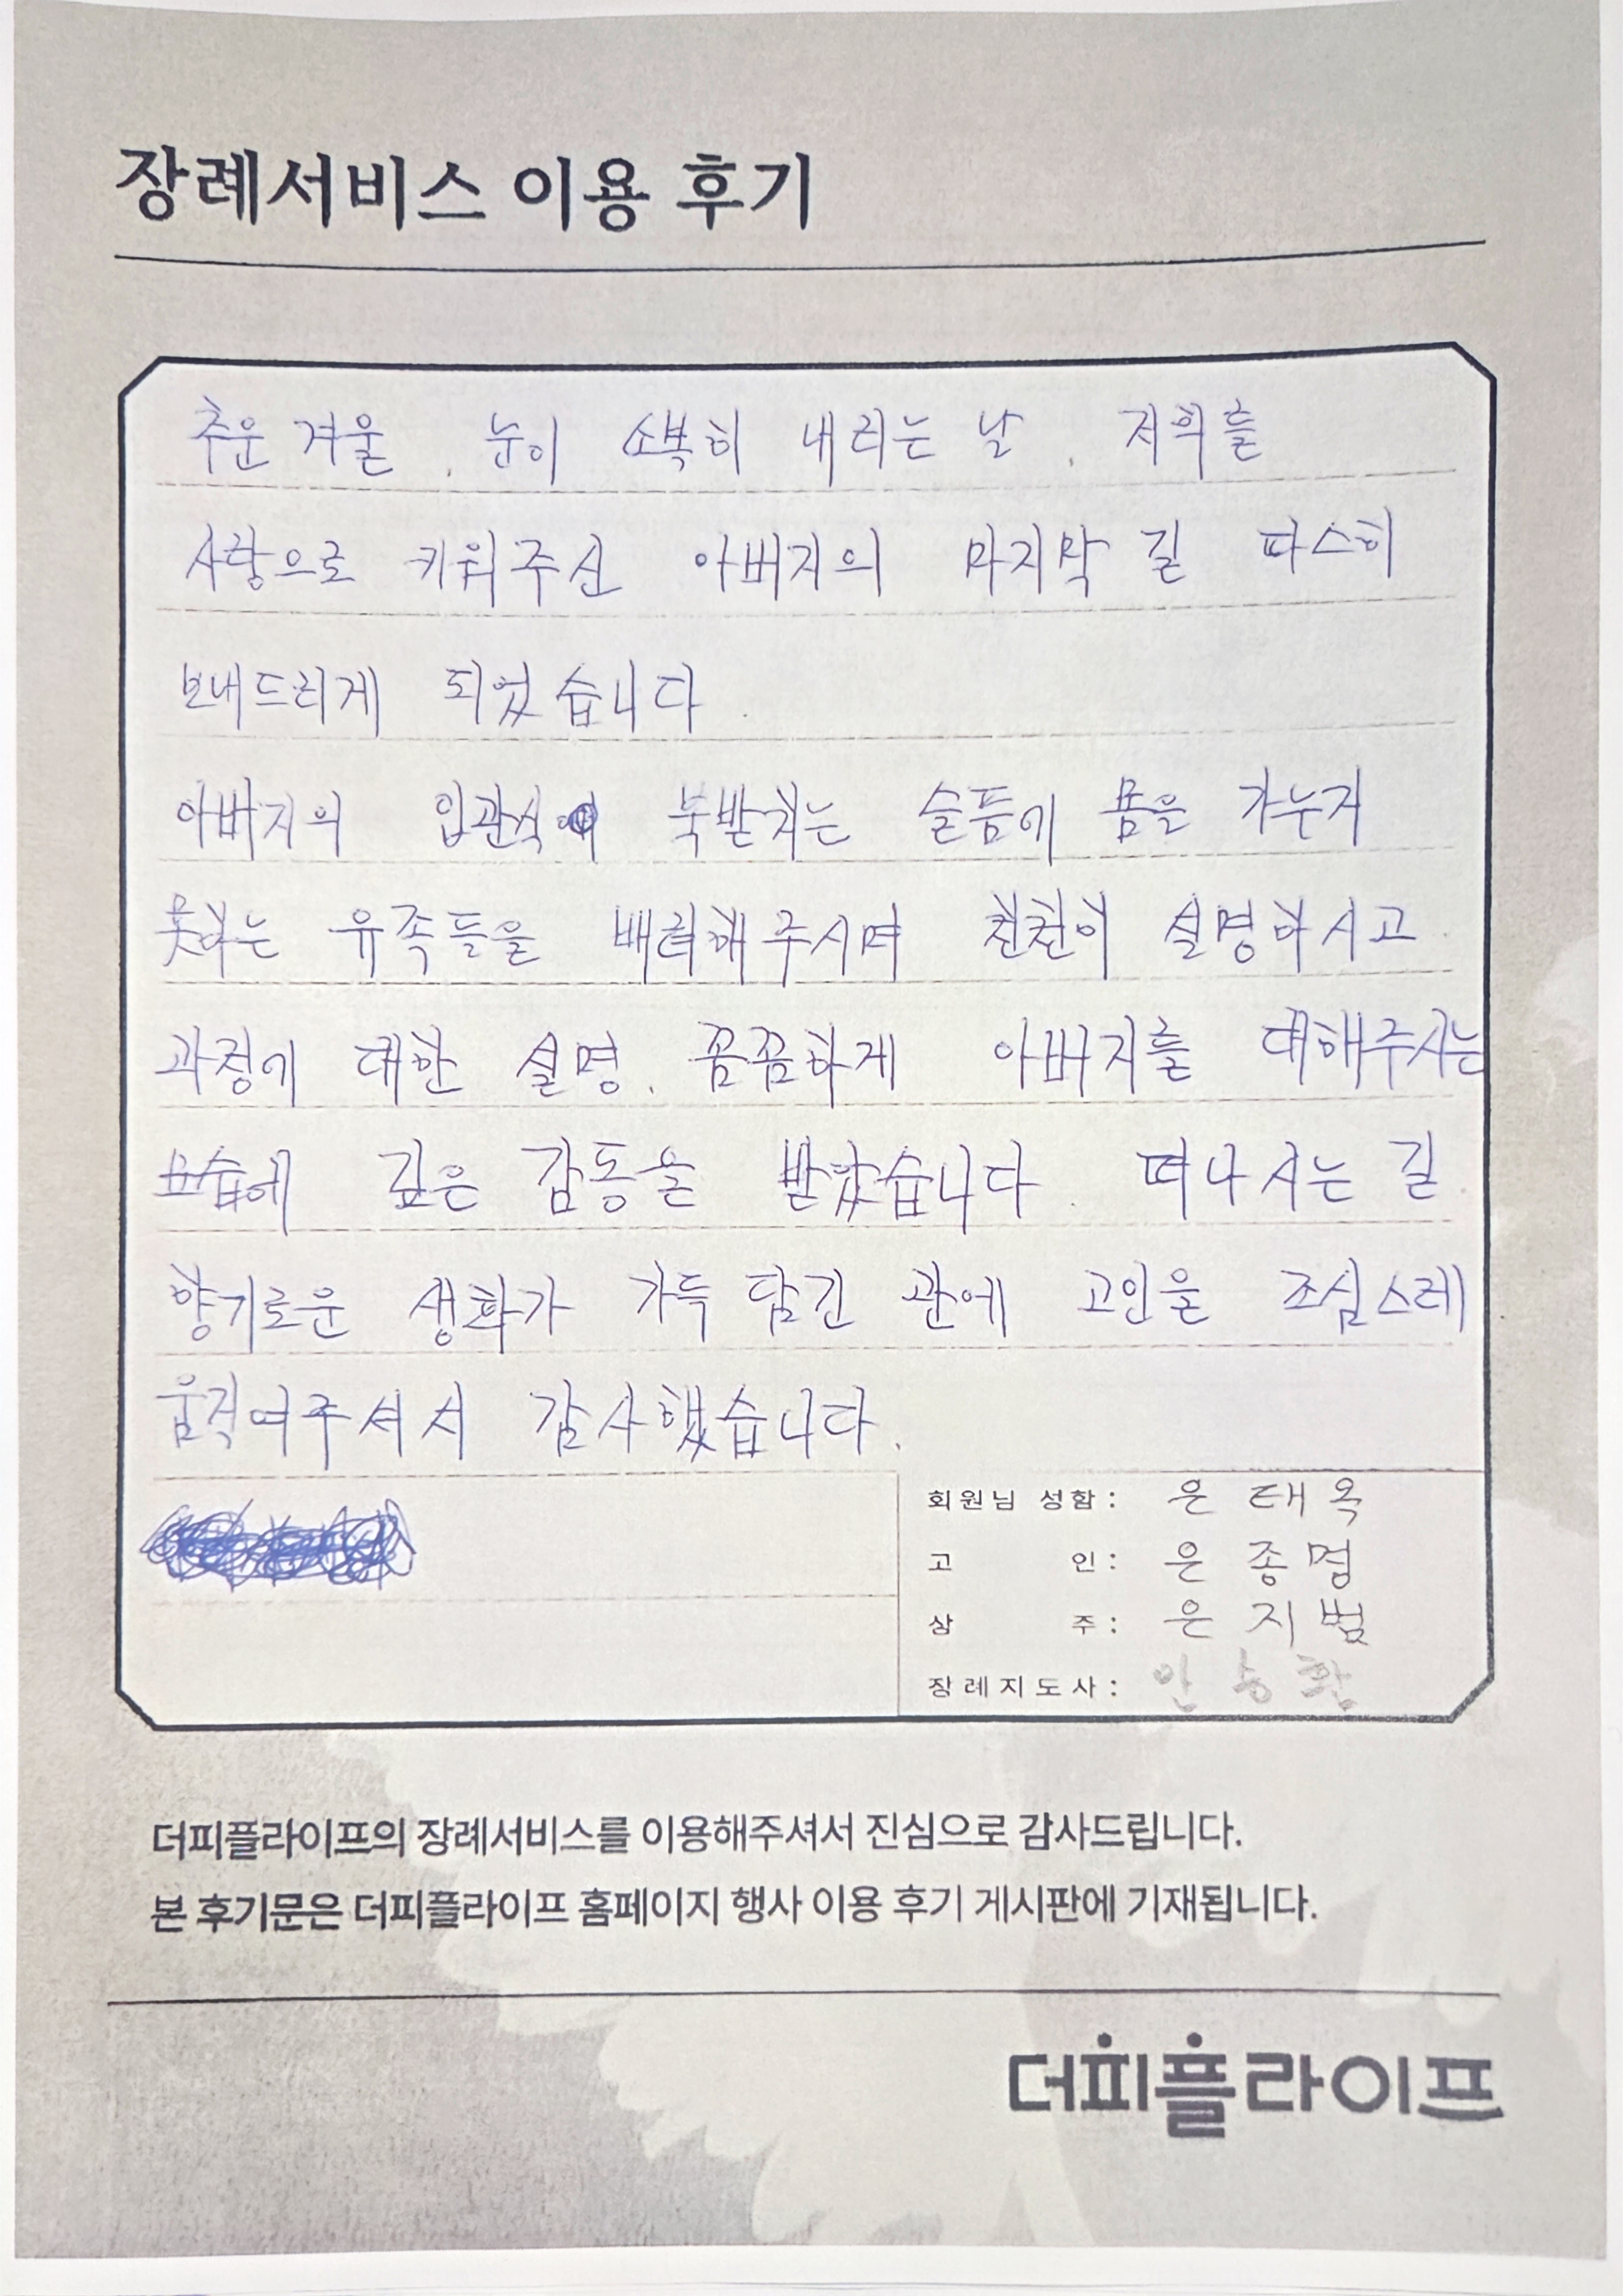 장례서비스 이용 후기
추운 겨울, 눈이 소복히 내리는 날, 저희를
사랑으로 키워주신 아버지의 마지막 길 따스히
보내드리게 되었습니다.
아버지의 입관식에 북받치는 슬픔에 몸을 가누지
못하는 유족들을 배려해 주시며 천천히 설명하시고
과정에 대한 설명, 꼼꼼하게 아버지를 대해주시는
모습에 깊은 감동을 받았습니다. 떠나시는 길
향기로운 생화가 가득 담긴 관에 고인을 조심스레
움직여주셔서 감사했습니다.
회원님 성함: 은태옥
고인: 은종렴
상주: 은지범
장례지도사: 안승환
더피플라이프의 장례서비스를 이용해주셔서 진심으로 감사드립니다.
본 후기문은 더피플라이프 홈페이지 행사 이용 후기 게시판에 기재됩니다.
더피플라이프